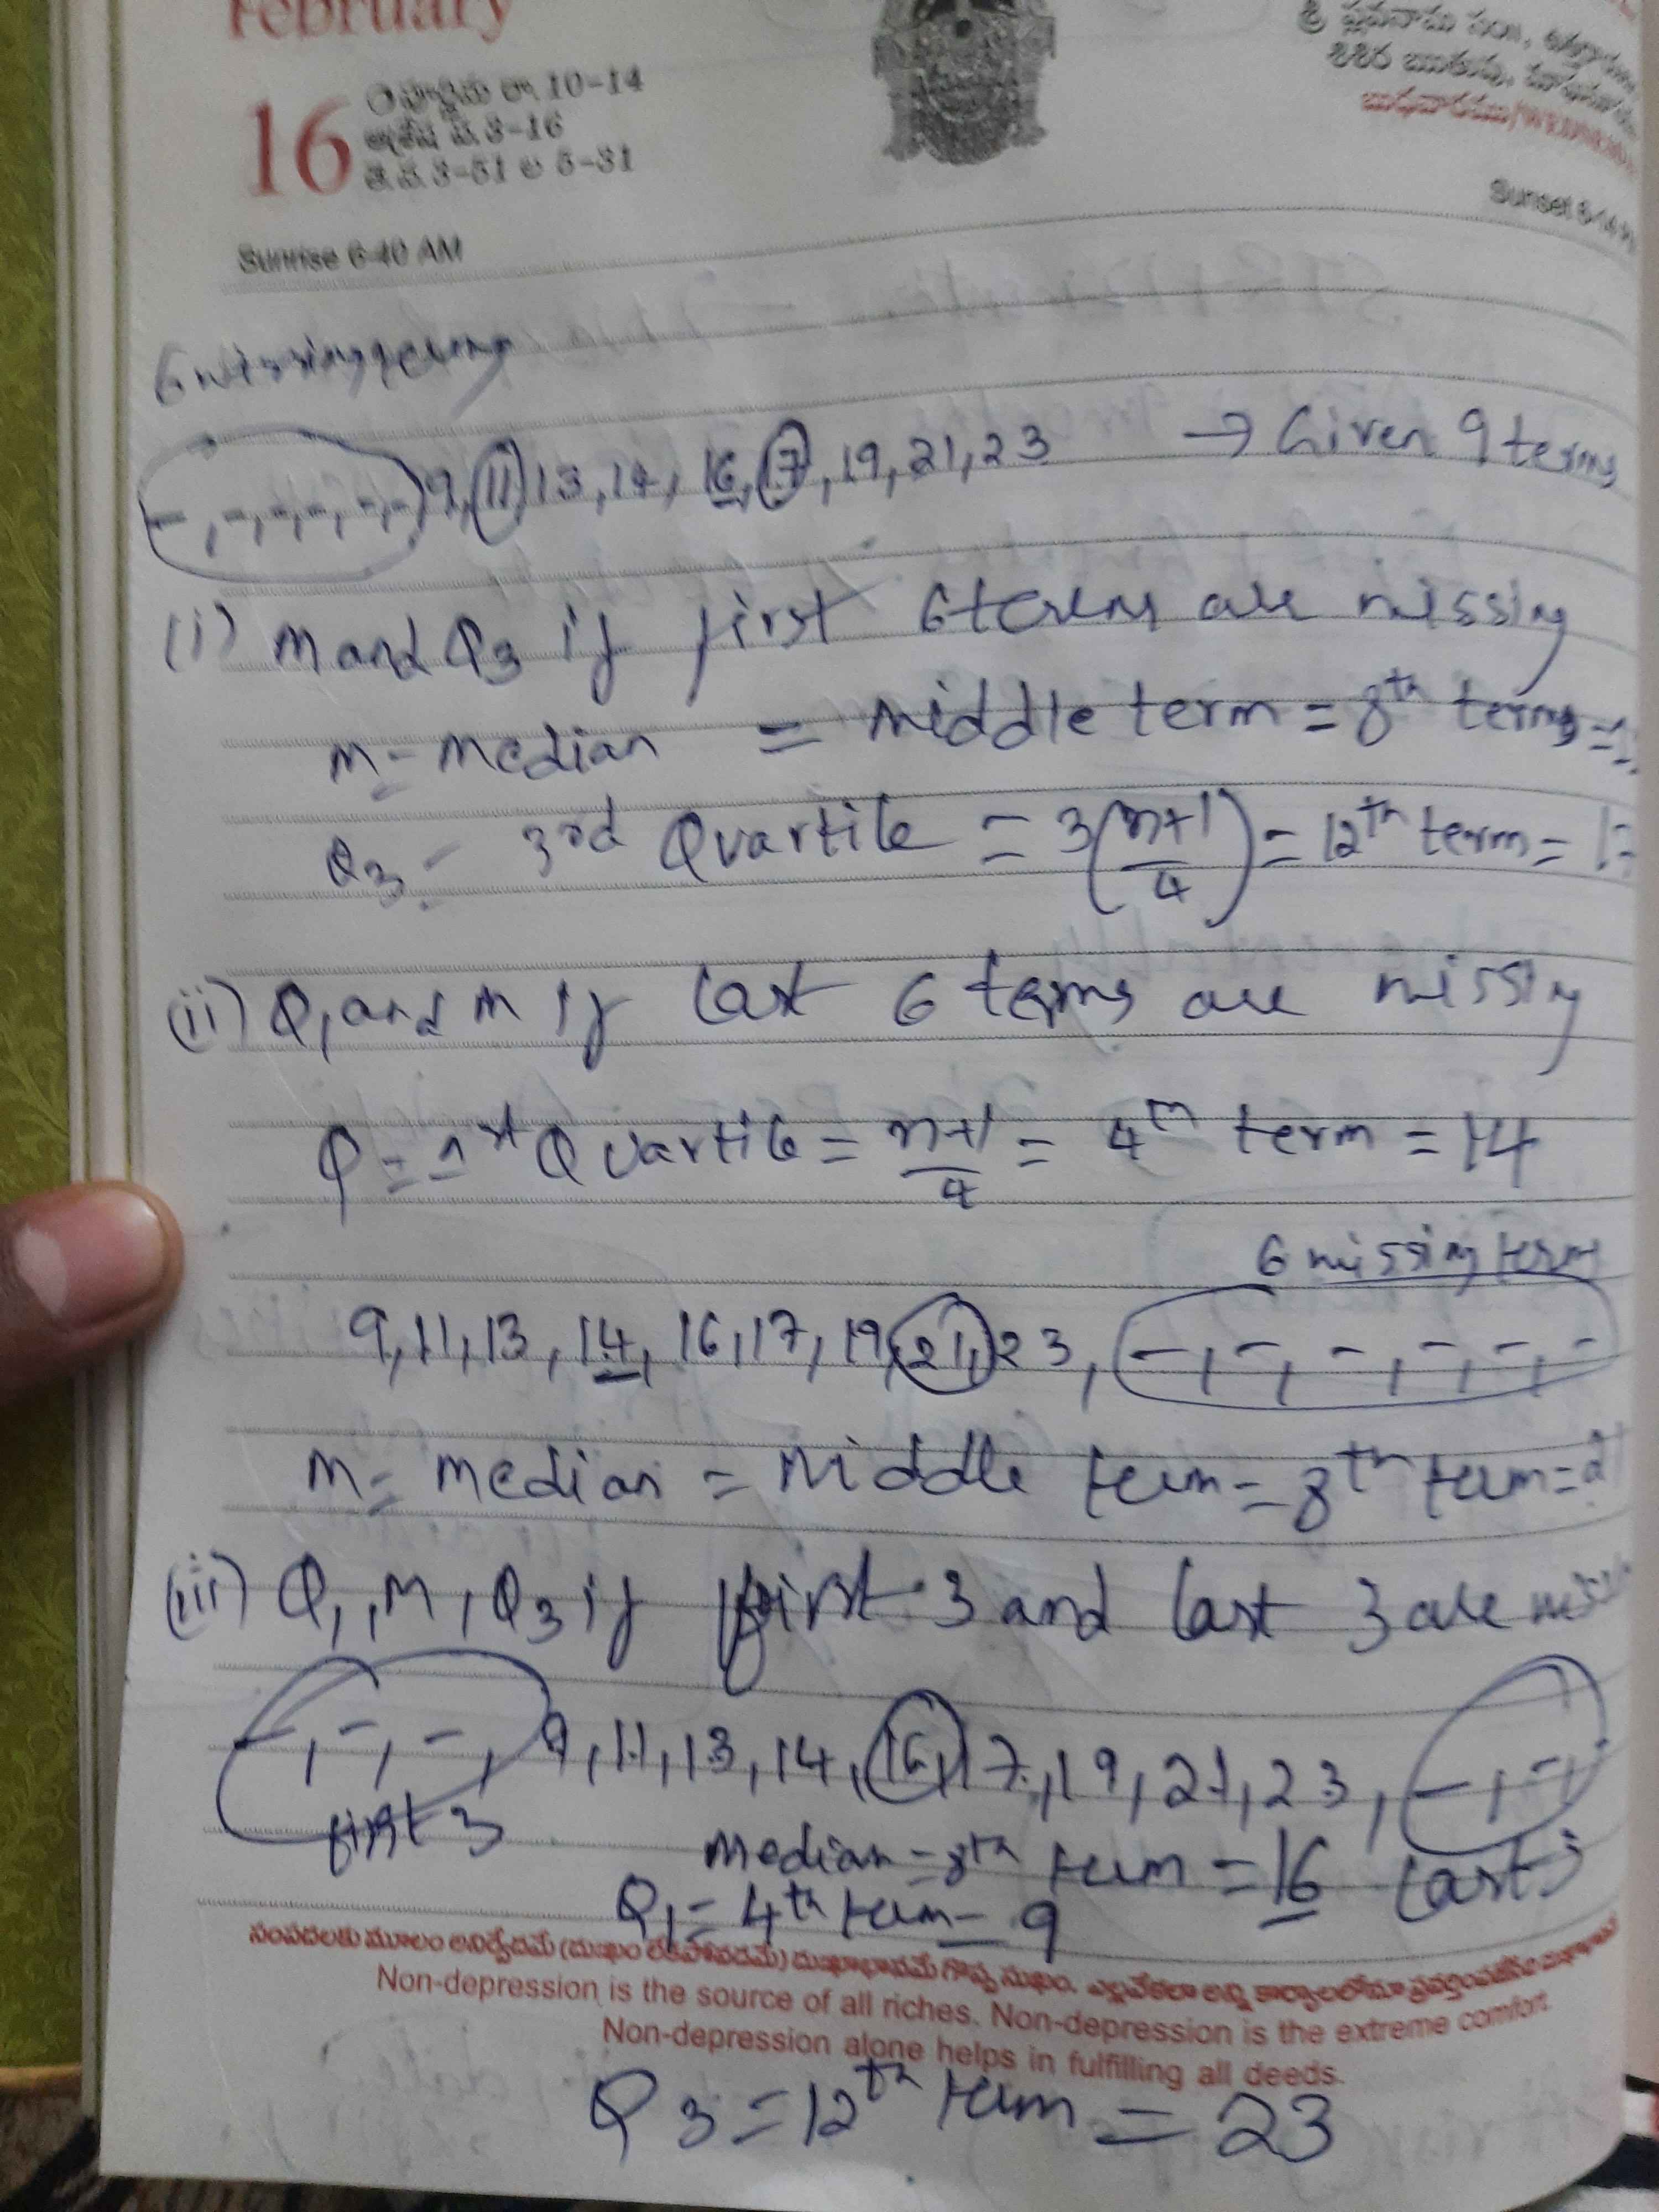 February
16
10-14
3-16
3-51 ల 5-31
Sunrise 6-40 AM
Sunset
6 missing terms
-, -, -, -, -, -, 9, 11, 13, 14, 16, 17, 19, 21, 23 → Given 9 terms
(i) M and Q3 if first 6 terms are missing
M = Median = Middle term = 8th term =
Q3 = 3rd Quartile = 3(n+1/4) = 12th term =
(ii) Q1 and M if last 6 terms are missing
Q = 1st Quartile = n+1/4 = 4th term = 14
6 missing term
9, 11, 13, 14, 16, 17, 19, 21, 23, -, -, -, -, -, -
M = Median = Middle term = 8th term = 21
(iii) Q1, M, Q3 if first 3 and last 3 are
-, -, -, 9, 11, 13, 14, 16, 17, 19, 21, 23, -, -,
first 3
Median = 8th term = 16 last 3
Q1 = 4th term = 9
Non-depression is the source of all riches. Non-depression is the extreme comfort.
Non-depression alone helps in fulfilling all deeds.
Q3 = 12th term = 23